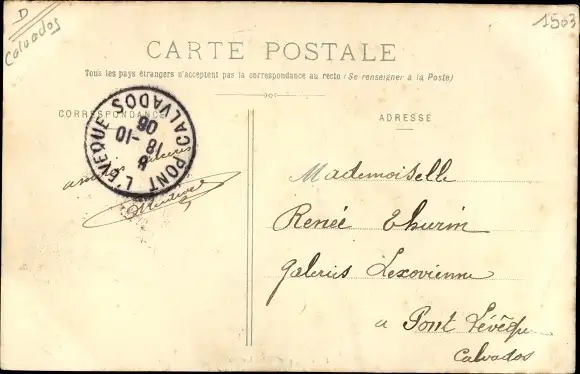 D
Calvados
1503
CARTE POSTALE
Tous les pays étrangers n'acceptent pas la correspondance au recto (Se renseigner à la Poste)
CORRESPONDANCE
ADRESSE
PONT L'EVEQUE CALVADOS
8
18 -10
08
Mademoiselle
Renée Thurin
Galeries Lexovienne
a Pont Lévêque
Calvados